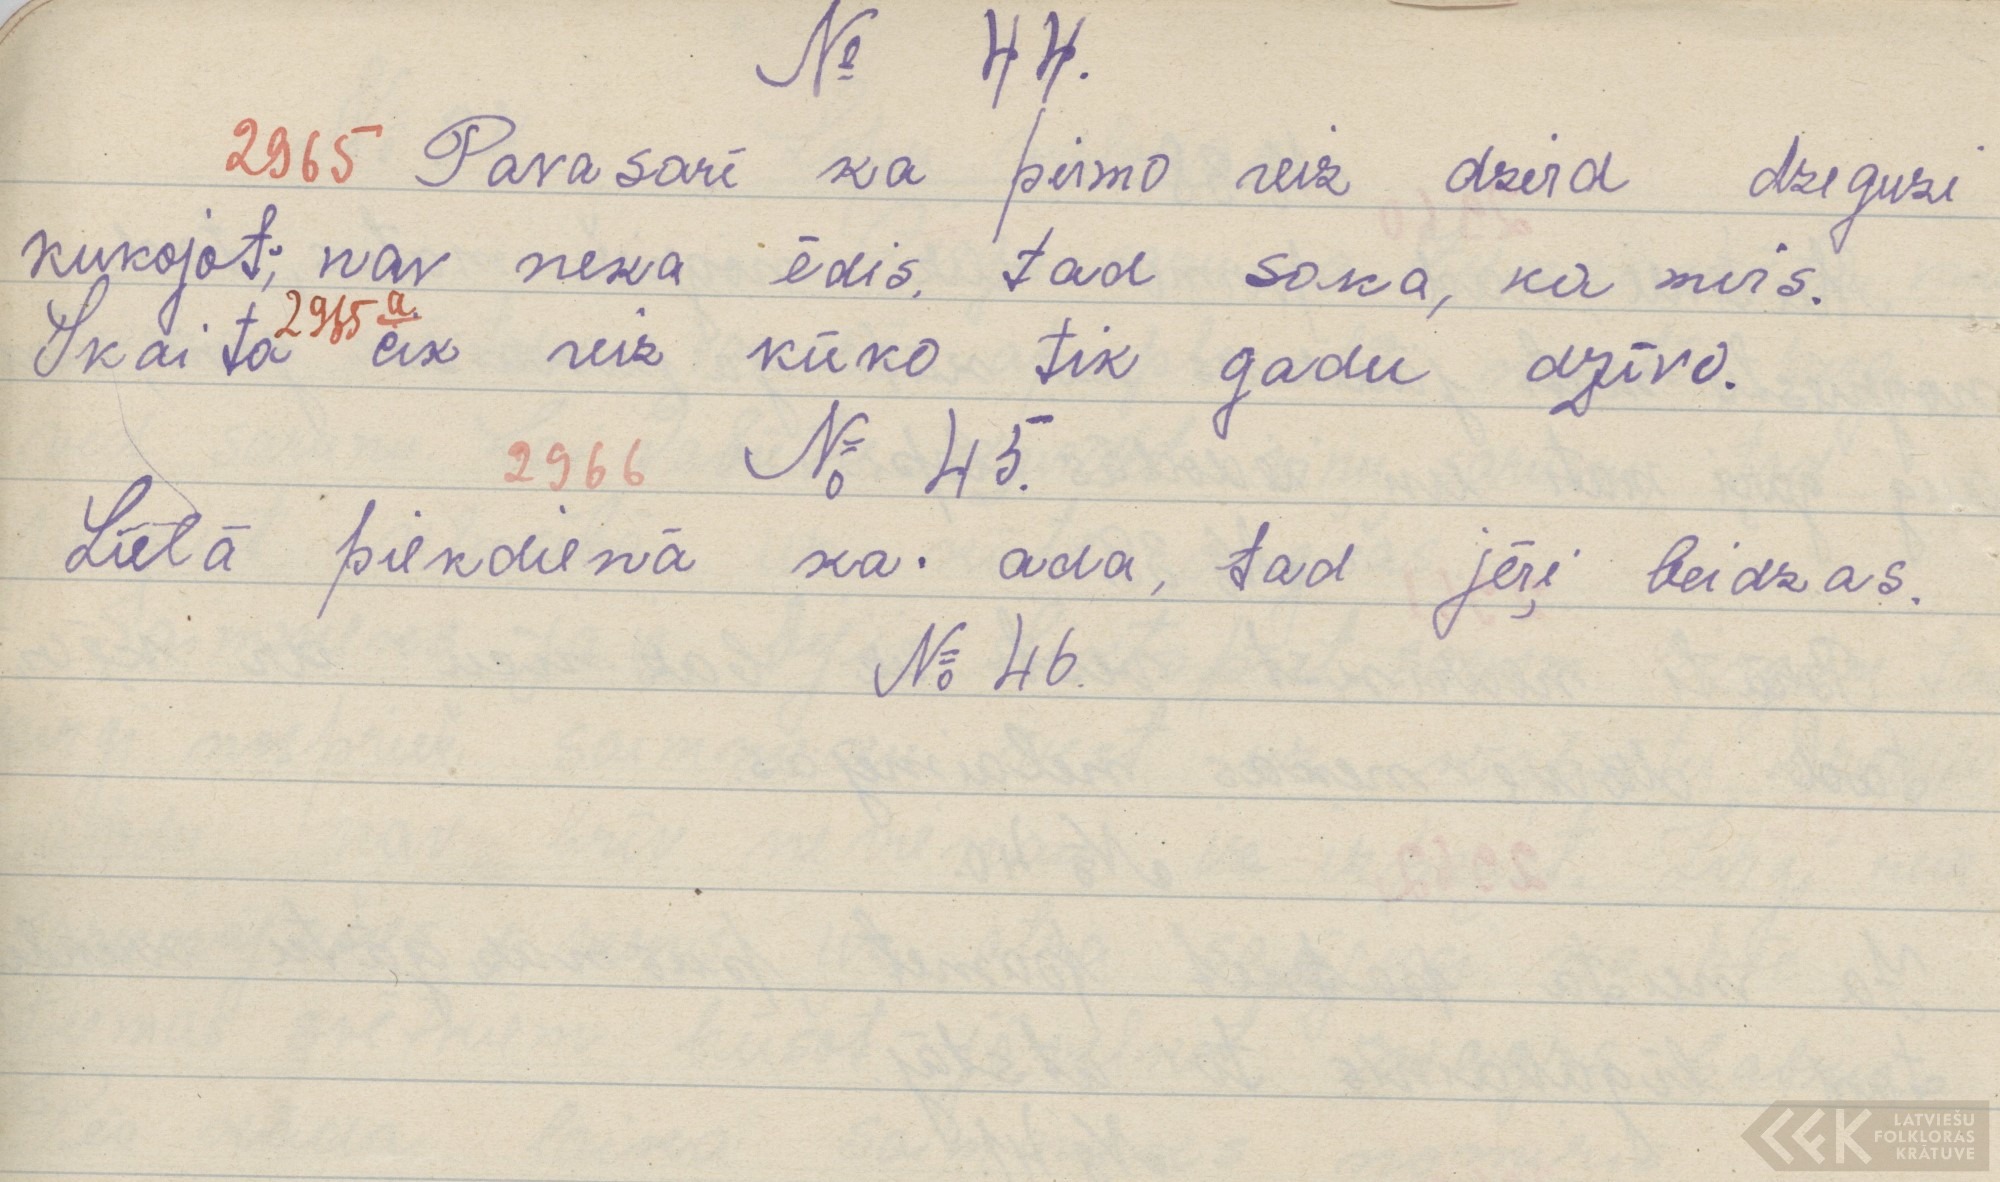 № 44.
2965 Pavasarī ka pirmo reiz dzird dzeguzi
kukojot, nav neka ēdis, tad saka, ka mirs.
2965 a.
Skaita cik reiz kūko tik gadu dzīvo.
2966 № 45.
Lielā piekdienā ka ada, tad jēŗi beidzas.
№ 46.
LATVIEŠU
FOLKLORAS
KRĀTUVE